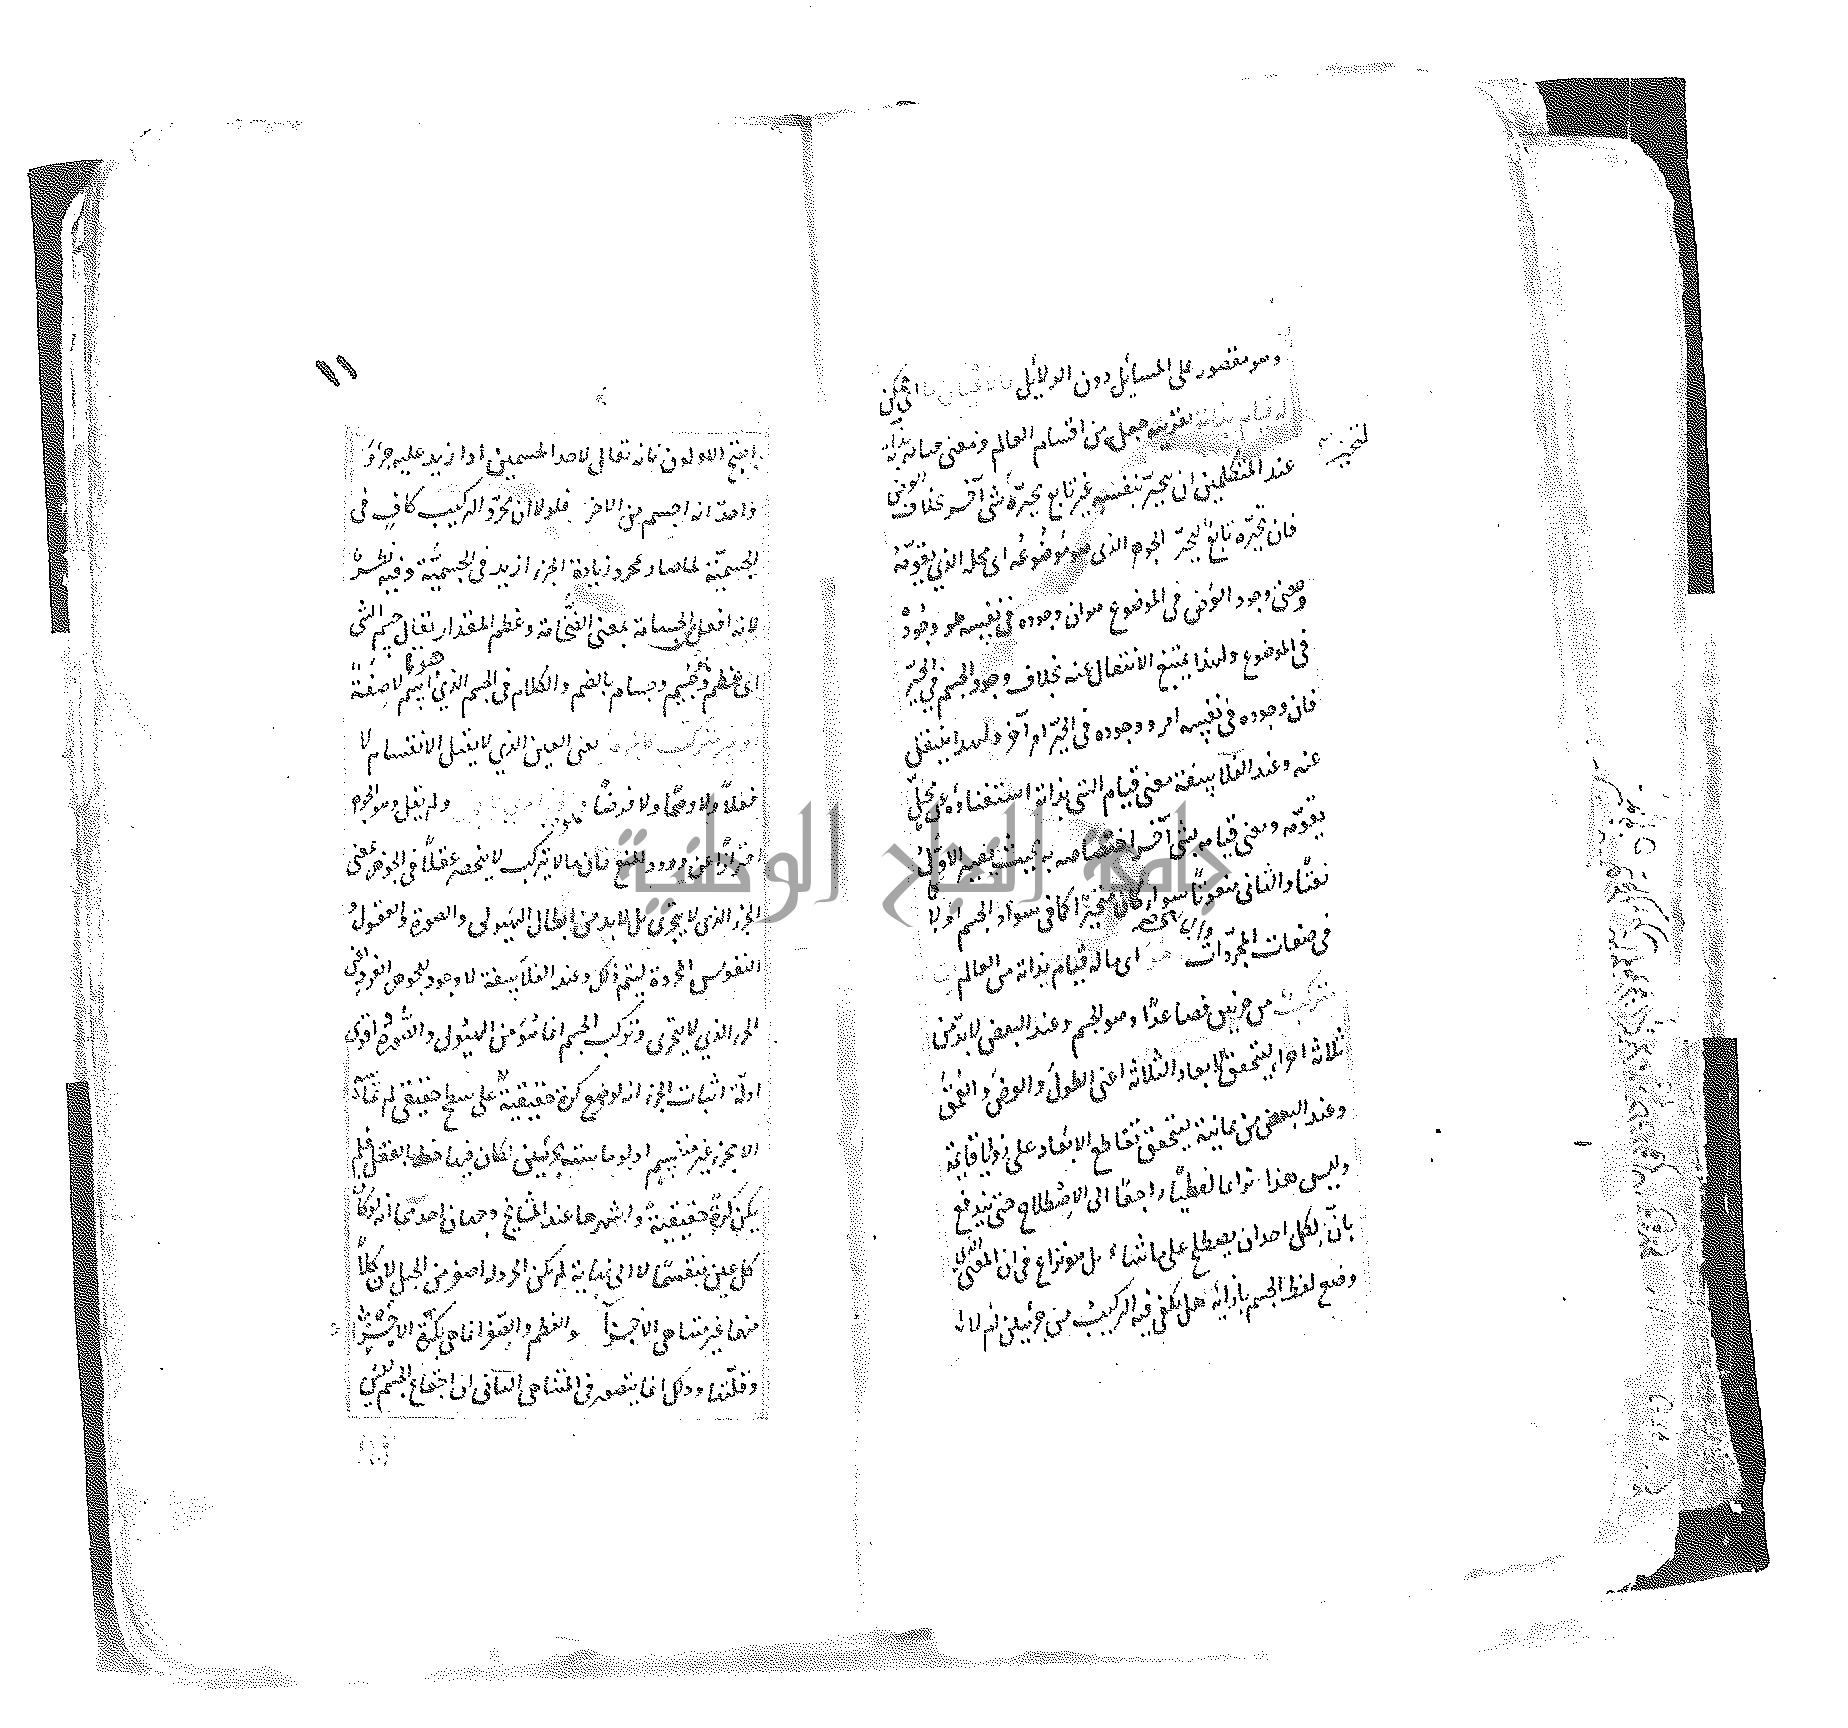 وهو مقصور على المسائل دون الدلائل
له قيام بذاته بقرينة جعله من اقسام العالم ومعنى قيامه بذاته
عند المتكلمين ان يتحيز بنفسه غير تابع تحيزه لشئ آخر بخلاف العرض
فان تحيزه تابع لتحيز الجوهر الذى هو موضوعه اى محله الذي يقومه
ومعنى وجود العرض فى الموضوع هو ان وجوده فى نفسه هو وجوده
فى الموضوع ولهذا يمتنع الانتقال عنه بخلاف وجود الجسم في الحيز
فان وجوده فى نفسه امر ووجوده فى الحيز امر آخر ولهذا ينتقل
عنه وعند الفلاسفة معنى قيام الشئ بذاته استغناؤه عن محل
يقومه ومعنى قيامه بشئ آخر اختصاصه به بحيث يصير الاول
نعتا والثانى منعوتا سواء كان متحيزا كما فى سواد الجسم او لا
كما فى صفات المجردات وهو اى ماله قيام بذاته من العالم
مركب من جزئين فصاعدا وهو الجسم وعند البعض لا بد من
ثلاثة اجزاء ليتحقق الابعاد الثلاثة اعنى الطول والعرض والعمق
وعند البعض من ثمانية ليتحقق تقاطع الابعاد على زوايا قايمة
وليس هذا نزاعا لفظيا راجعا الى الاصطلاح حتى يندفع
بان لكل احد ان يصطلح على ما شاء بل هو نزاع فى ان المعنى الذى
وضع لفظ الجسم بازائه هل يكفى فيه التركيب من جزئين ام لا
١١
احتج الاولون بانه تعالى لاحد الجسمين اذا زيد عليه جزؤ
واحد انه اجسم من الاخر فلولا ان مجرد التركيب كاف فى
الجسمية لما صار بمجرد زيادة الجزء ازيد فى الجسمية وفيه نظر
لانه افعل من الجسامة بمعنى الضخامة وعظم المقدار يقال جسم الشئ
اى عظم فهو جسيم وجسام بالضم والكلام فى الجسم الذي هو اسم لا صفة
او غير مركب كالجوهر يعنى العين الذي لا يقبل الانقسام لا
فعلا ولا وهما ولا فرضا ولم يقل وهو الجوهر
احترازا عن ورود المنع فان ما لا يتركب لا ينحصر عقلا فى الجوهر بمعنى
الجزء الذى لا يتجزى بل لا بد من ابطال الهيولى والصورة والعقول و
النفوس المجردة ليتم ذلك وعند الفلاسفة لا وجود للجوهر الفرد اعنى
الجزء الذي لا يتجزى وتركب الجسم انما هو من الهيولى والصورة واقوى
ادلة اثبات الجزء انه لو وضع كرة حقيقية على سطح حقيقى لم تماسه
الا بجزء غير منقسم اذ لو ماسته بجزئين لكان فيها خط بالفعل فلم
يكن كرة حقيقية واشهرها عند المشايخ وجهان احدهما انه لو كان
كل عين منقسما لا الى نهاية لم يكن الخردلة اصغر من الجبل لان كلا
منهما غير متناهى الاجزاء والعظم والصغر انما هى بكثرة الاجزاء
وقلتها وذلك انما يتصور فى المتناهى الثانى ان اجتماع اجزاء الجسم ليس
جامعة النجاح الوطنية